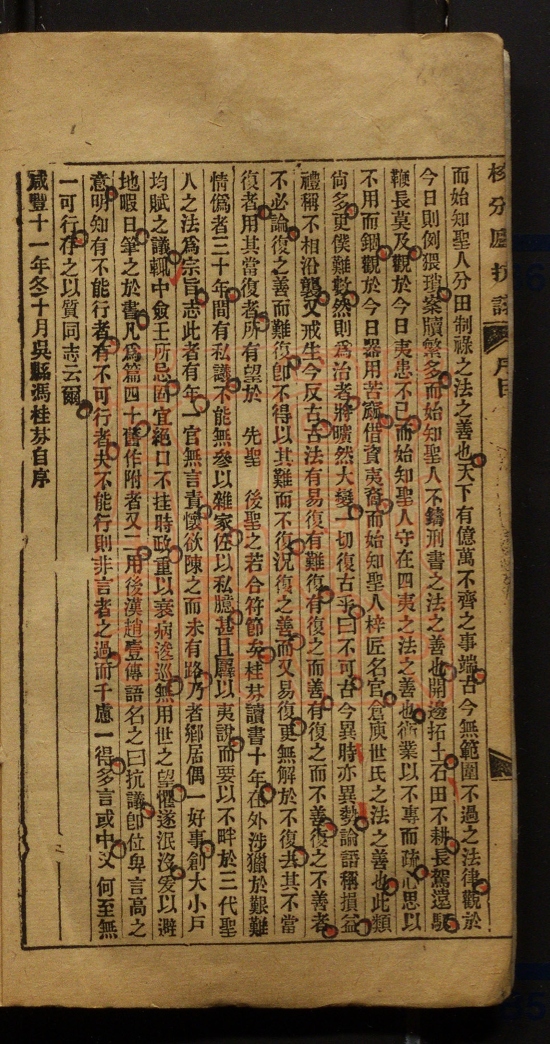 校邠廬抗議
而始知聖人分田制祿之法之善也天下有億萬不齊之事端古今無範圍不過之法律觀於
今日則例猥瑣案牘繁多而始知聖人不鑄刑書之法之善也開邊拓土石田不耕長駕遠馭
鞭長莫及觀於今日夷患不已而始知聖人守在四夷之法之善也術業以不專而疏心思以
不用而錮觀於今日器用苦窳借資夷裔而始知聖人梓匠名官倉庾世氏之法之善也此類
尙多更僕難數然則爲治者將曠然大變一切復古乎曰不可古今異時亦異勢論語稱損益
禮稱不相沿襲又戒生今反古古法有易復有難復有復之而善有復之而不善復之不善者
不必論復之善而難復卽不得以其難而不復況復之善而又易復更無解於不復去其不當
復者用其當復者所有望於 先聖 後聖之若合符節矣桂芬讀書十年在外涉獵於艱難
情僞者三十年間有私議不能無參以雜家佐以私臆甚且羼以夷說而要以不畔於三代聖
人之法爲宗旨志此者有年一官無言責懷欲陳之而未有路乃者鄕居偶一好事創大小戶
均賦之議輒中僉壬所忌固宜絕口不挂時政重以衰病浚巡無用世之望懼遂泯沒爰以避
地暇日筆之於書凡爲篇四十舊作附者又二用後漢趙壹傳語名之曰抗議卽位卑言高之
意明知有不能行者有不可行者夫不能行則非言者之過而千慮一得多言或中又何至無
一可行存之以質同志云爾
咸豐十一年冬十月吳縣馮桂芬自序